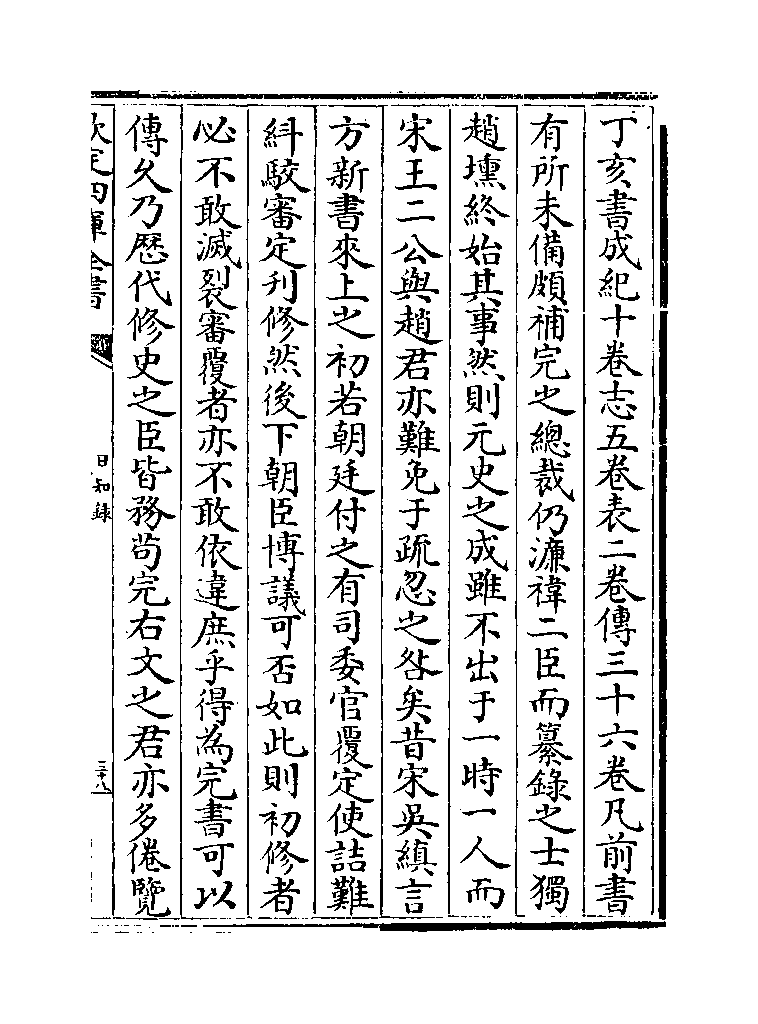 丁亥書成紀十卷志五卷表二卷傳三十六卷凡前書
有所未備頗補完之總裁仍濂禕二臣而纂錄之士獨
趙壎終始其事然則元史之成雖不出于一時一人而
宋王二公與趙君亦難免于疏忽之咎矣昔宋吳縝言
方新書來上之初若朝廷付之有司委官覆定使詰難
糾駮審定刋修然後下朝臣博議可否如此則初修者
必不敢滅裂審覆者亦不敢依違庶乎得為完書可以
傳久乃歴代修史之臣皆務苟完右文之君亦多倦覽
欽定四庫全書
日知錄
三十八